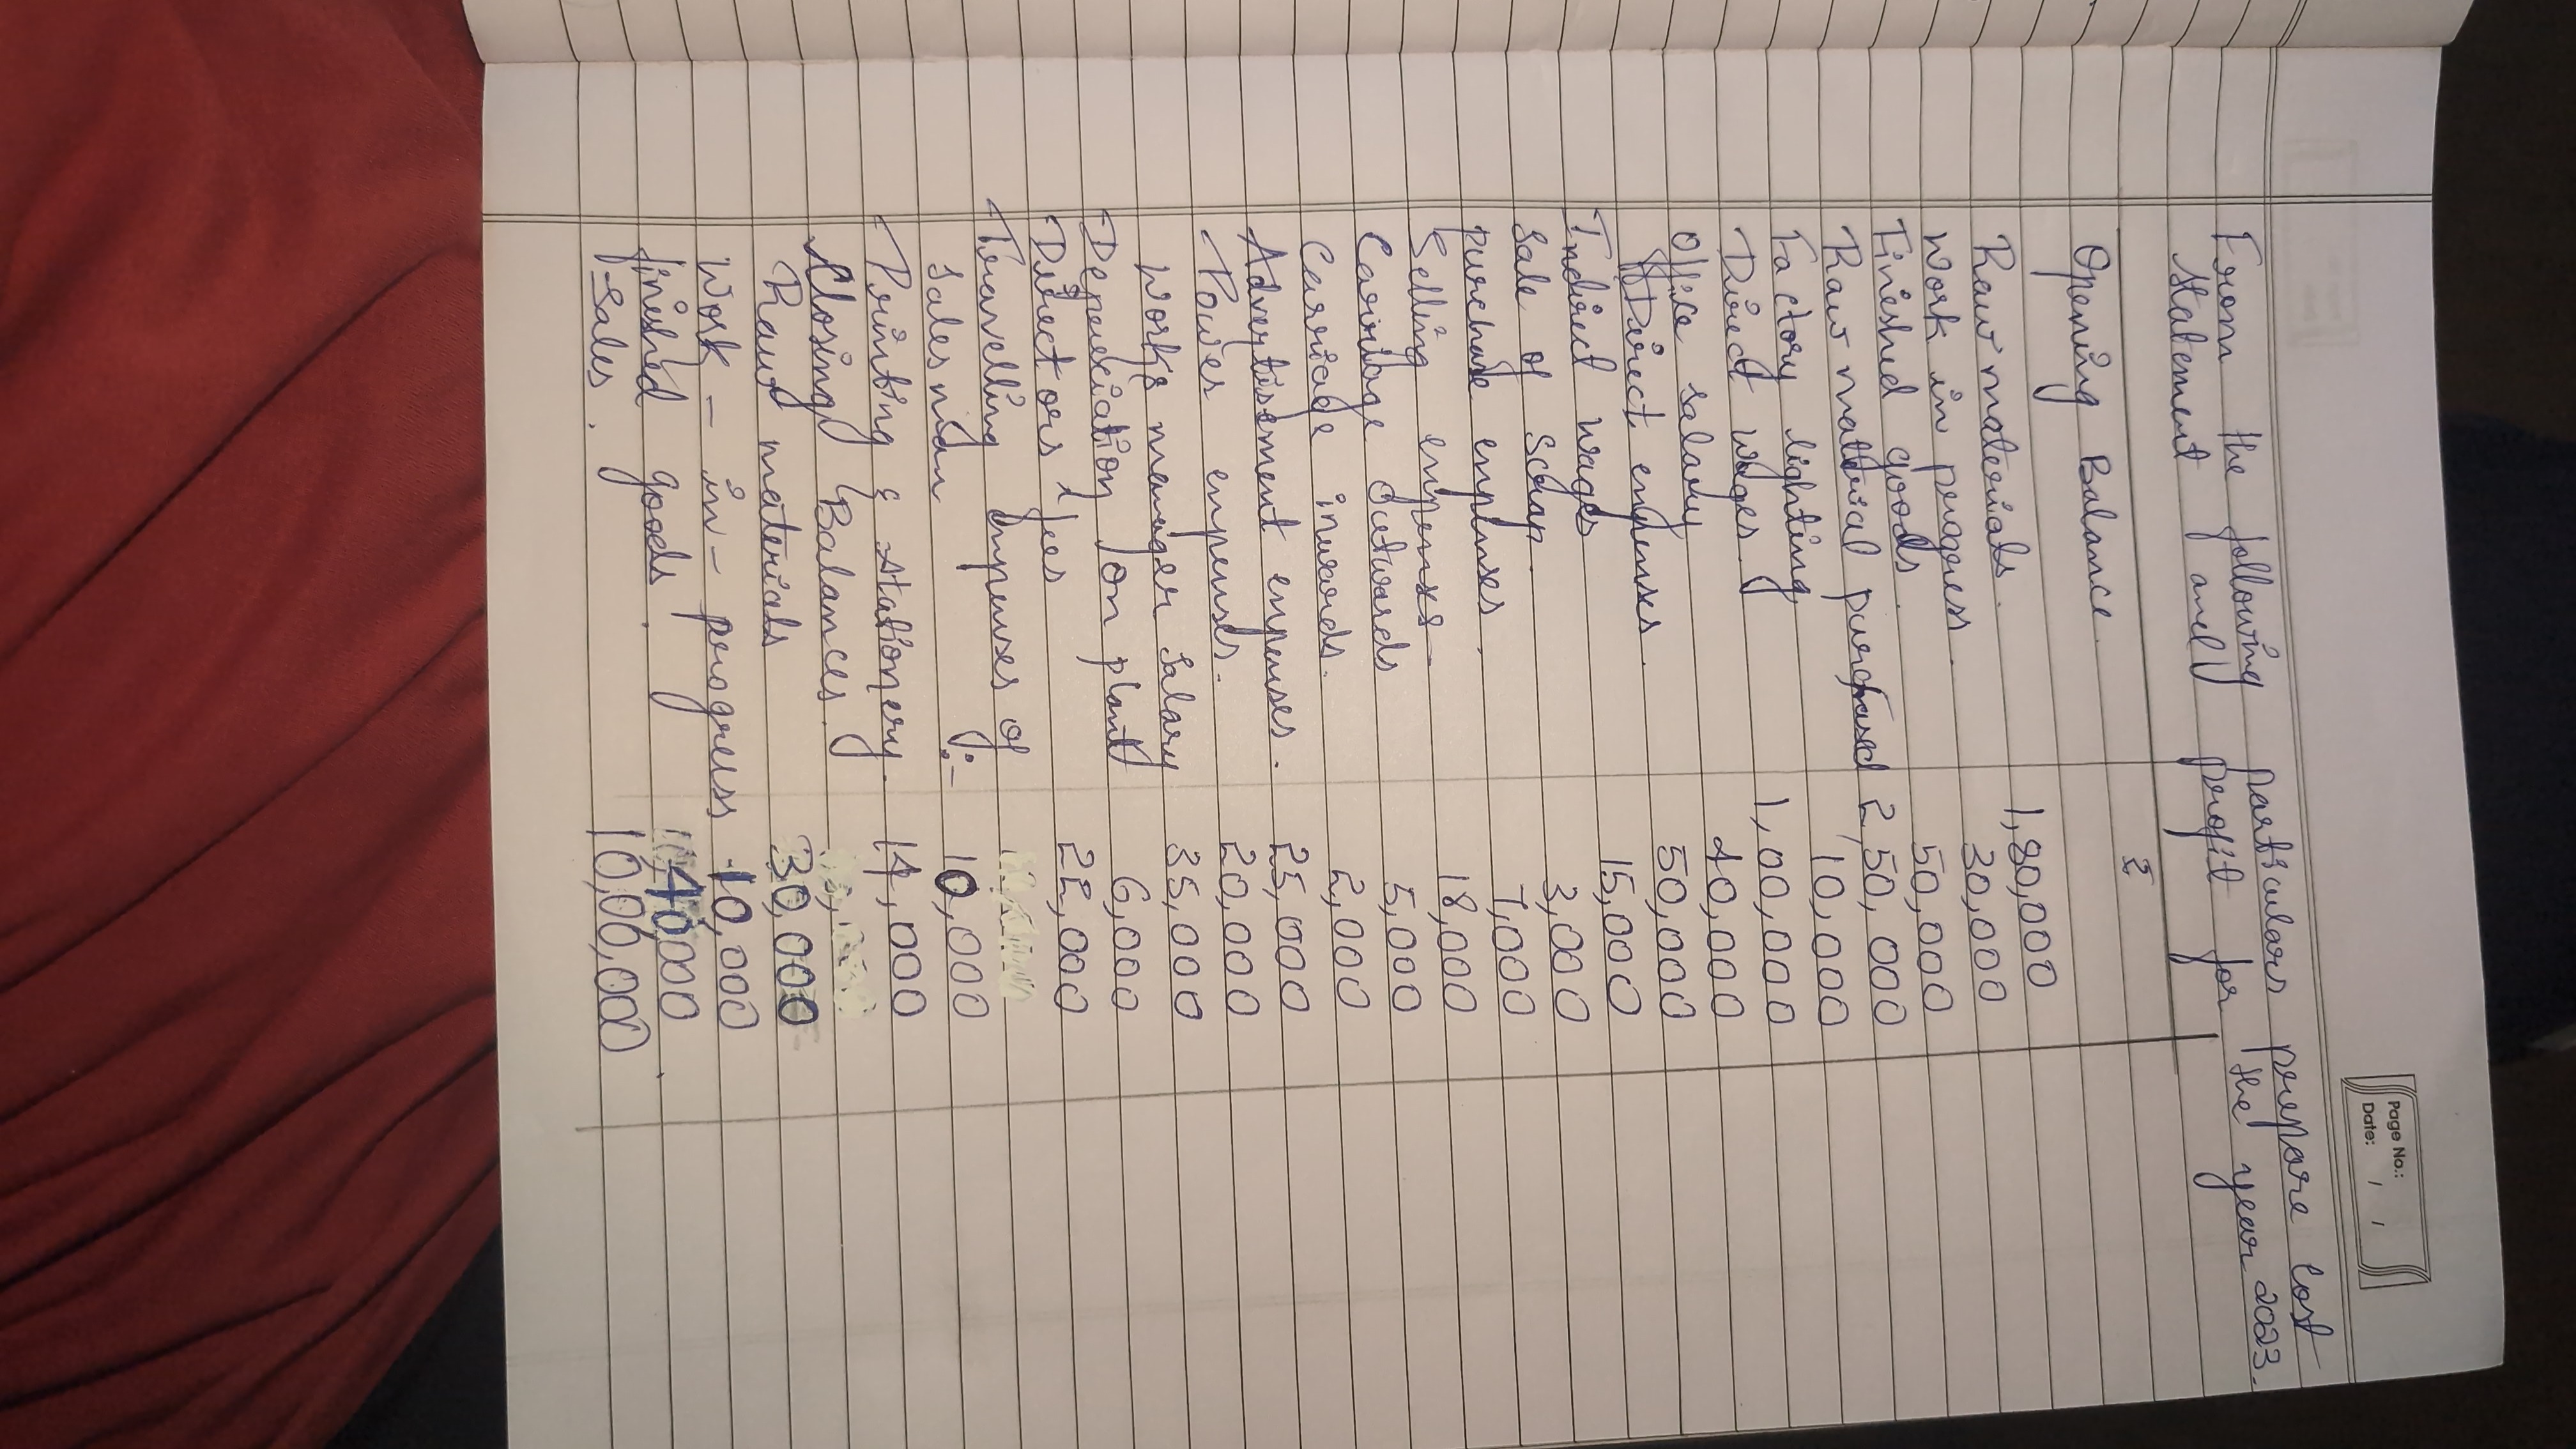 Page No.:
Date: / /
From the following particulars prepare Cost
statement and profit for the year 2023.
₹
Opening Balance.
Raw materials. 1,80,000
Work in progress. 30,000
Finished goods. 50,000
Raw material purchased 2,50,000
Factory lighting 10,000
Direct wages. 1,00,000
Office salary 40,000
Direct expenses. 50,000
Indirect wages 15,000
Sale of scrap. 3,000
purchase expenses. 7,000
Selling expenses 18,000
Carriage outwards 5,000
Carriage inwards. 2,000
Advertisement expenses. 25,000
Power expenses. 20,000
Works manager salary 35,000
Depreciation on plant 6,000
Directors fees 22,000
Travelling Expenses of
salesman :- 10,000
Printing & stationery. 14,000
Closing Balances.
Raw materials 30,000
Work-in-progress 10,000
finished goods. 40,000
Sales. 10,00,000